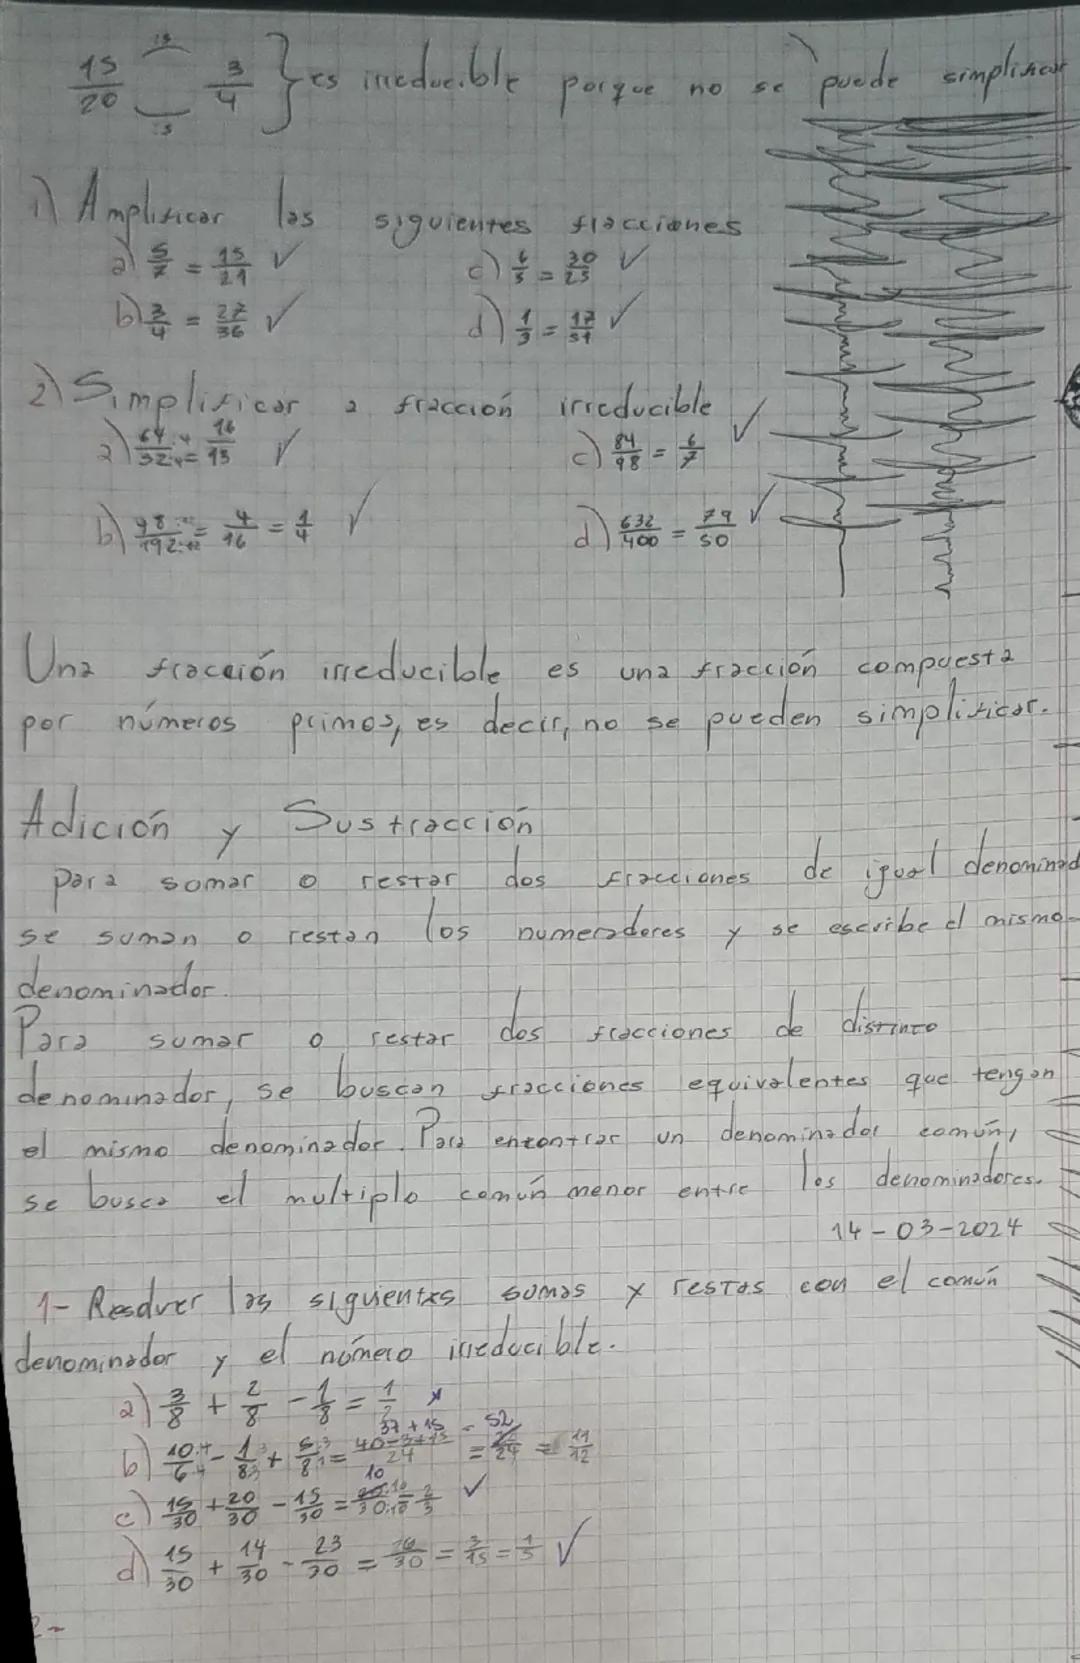 15/20 :5 :5 3/4 } es irreducible porque no se puede simplificar
1) Amplificar las siguientes fracciones
a) 5/7 = 15/21 ✓ c) 6/5 = 30/25 ✓
b) 3/4 = 27/36 ✓ d) 1/3 = 17/51 ✓
2) Simplificar a fracción irreducible
a) 64/52 :4 :4 = 16/13 ✓ c) 84/98 = 6/7 ✓
b) 48/192 :12 :12 = 4/16 = 1/4 ✓ d) 632/400 = 79/50 ✓
Una fracción irreducible es una fracción compuesta
por números primos, es decir, no se pueden simplificar.
Adición y Sustracción
para somar o restar dos fracciones de igual denominad
se suman o restan los numeradores y se escribe el mismo
denominador.
Para sumar o restar dos fracciones de distinto
denominador, se buscan fracciones equivalentes que tengan
el mismo denominador. Para encontrar un denominador común,
se busca el multiplo común menor entre los denominadores.
14-03-2024
1- Resolver las siguientes sumas y restas con el común
denominador y el número irreducible.
a) 3/8 + 2/8 - 1/8 = 1/2 x
37 + 15 = 52
b) 10/6 - 1/8 + 5/8 = 40-3+15/24 = /24 = 11/12
c) 15/30 + 20/30 - 15/30 = 2/3 ✓
d) 15/30 + 14/30 - 23/30 = /30 = 3/15 = 1/5 ✓
2-